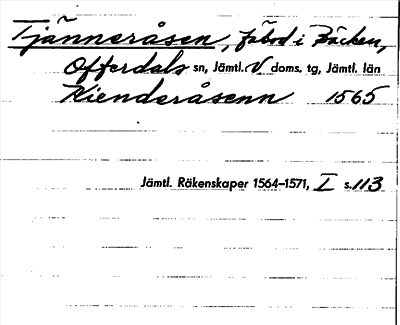 Tjänneråsen, fäbod i Bäcken,
Offerdals sn, Jämtl. V doms. tg, Jämtl. län
Kienderåsenn 1565
Jämtl. Räkenskaper 1564–1571, I s. 113